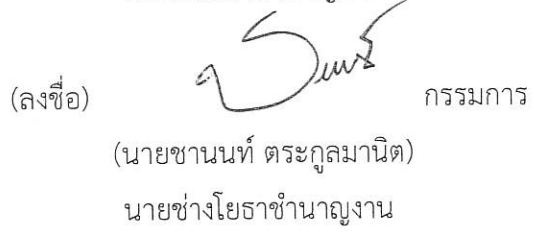 (ลงชื่อ) กรรมการ
(นายชานนท์ ตระกูลมานิต)
นายช่างโยธาชำนาญงาน